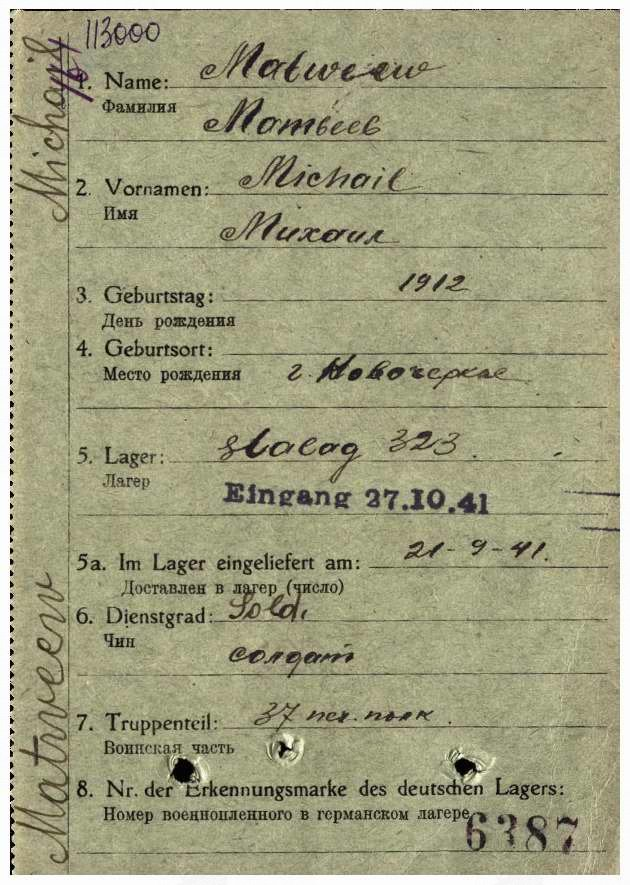 113000
Michail
1. Name: Matweew
Фамилия
Матвеев
2. Vornamen: Michail
Имя
Михаил
1912
3. Geburtstag:
День рождения
4. Geburtsort:
Место рождения г. Новочеркас
5. Lager: Stalag 323.
Лагер
Eingang 27.10.41
5a. Im Lager eingeliefert am: 21-9-41.
Доставлен в лагер (число)
6. Dienstgrad: Sold.
Чин
солдат
7. Truppenteil: 37 пех. полк.
Воинская часть
8. Nr. der Erkennungsmarke des deutschen Lagers:
Номер военнопленного в германском лагере
6387
Matweew